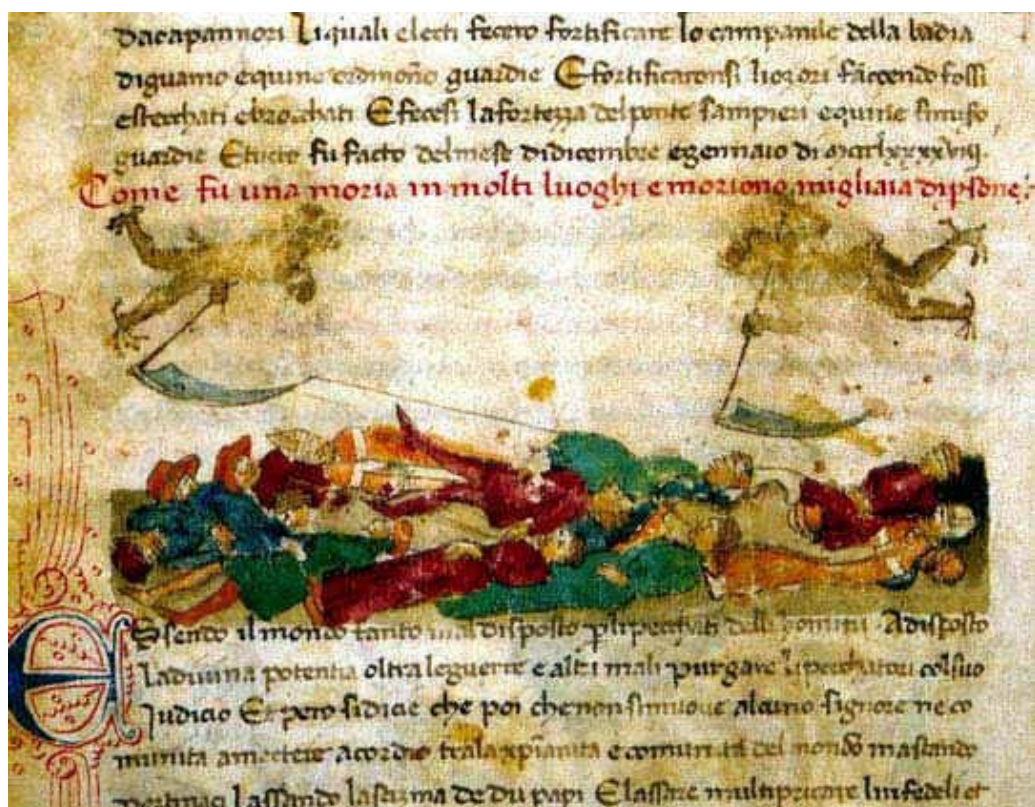 dacapannori Liquali electi fecero fortificare lo campanile della badia
diguamo equine ordinono guardie E fortificaronsi liozori faccendo fossi
estecchati ebrocchati E fecesi lafortezza delponte sampieri equine simiso
guardie Etucto fu facto delmese didicembre egennaio di mcclxxxxviij.
Come fu una moria in molti luoghi e moriono migliaia dipsone:
Essendo il mondo tanto mal disposto p li pecchati delli homini Adisposto
Ladiuina potentia oltra leguerre e altri mali purgare li pecchatori colsuo
Judicio Et pero sidicie che poi che non simuove alcuno signore ne co
munita amectere acordio tralaxpianita e comunita del mondo mastando
pertinaci Lassando lascizma de du papi E lassare multipricare linfedeli et